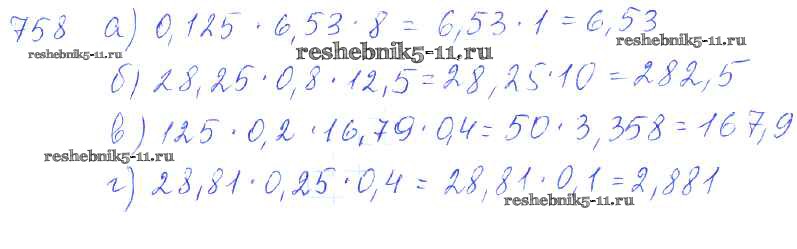 758 а) 0,125 · 6,53 · 8 = 6,53 · 1 = 6,53
reshebnik5-11.ru
reshebnik5-11.ru
reshebnik5-11.ru
б) 28,25 · 0,8 · 12,5 = 28,25 · 10 = 282,5
в) 125 · 0,2 · 16,79 · 0,4 = 50 · 3,358 = 167,9
reshebnik5-11.ru
г) 28,81 · 0,25 · 0,4 = 28,81 · 0,1 = 2,881
reshebnik5-11.ru